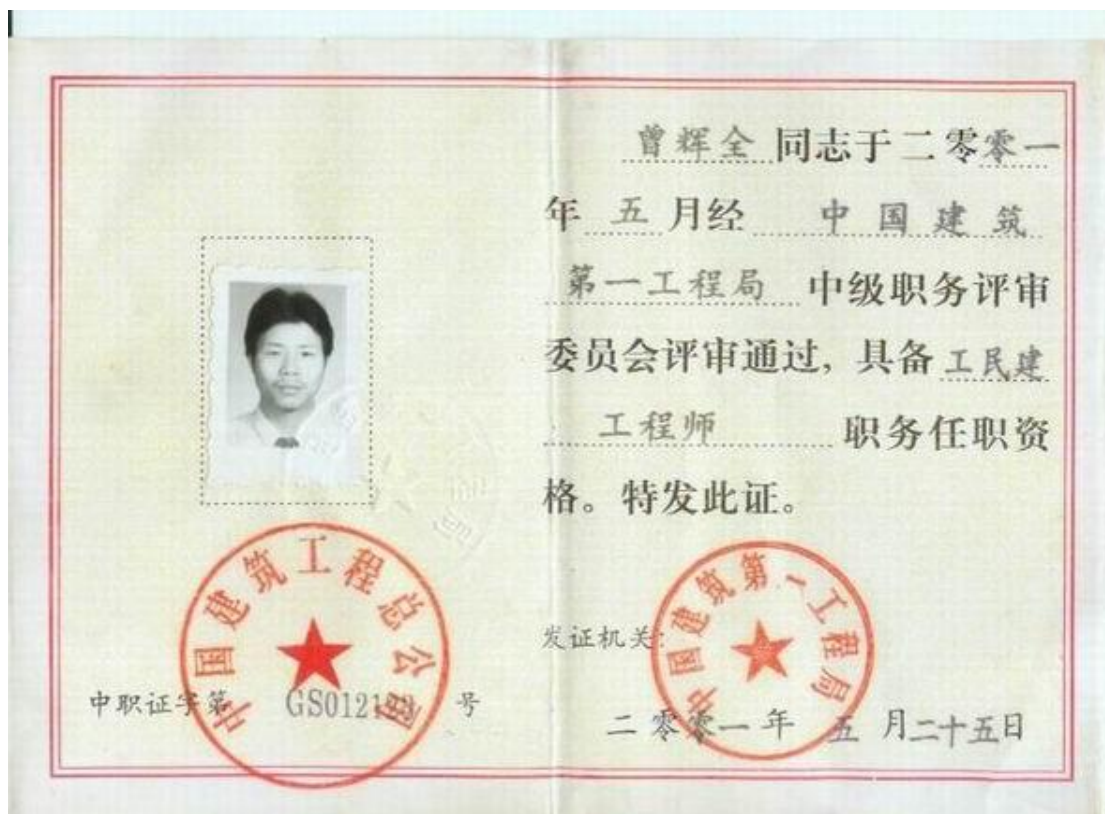 曾辉全同志于二零零一
年五月经中国建筑
第一工程局中级职务评审
委员会评审通过，具备工民建
工程师职务任职资
格。特发此证。
中国建筑工程总公司
中职证字第 号
中国建筑第一工程局
发证机关：
二零零一年五月二十五日